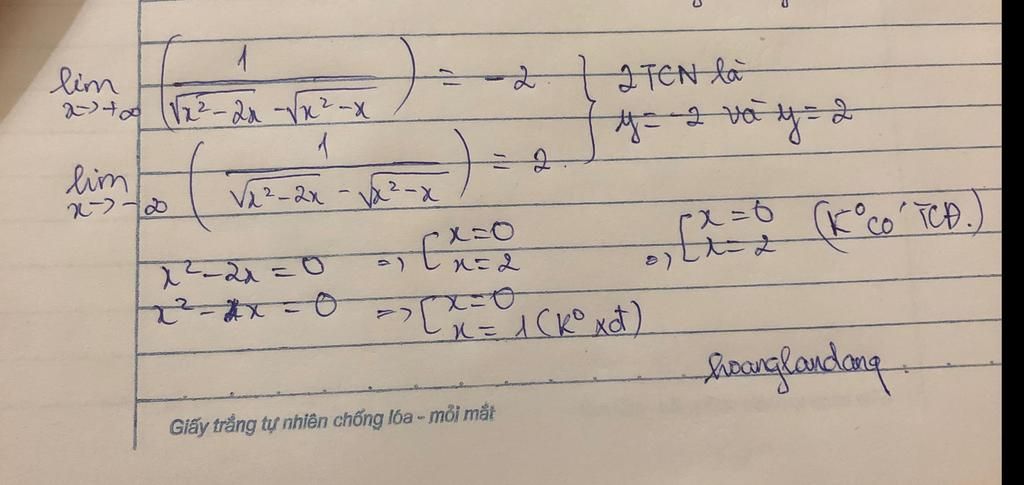 lim x→+∞ (1 / (√(x²-2x) - √(x²-x))) = -2 } 2 TCN là
y=-2 và y=2
lim x→-∞ (1 / (√(x²-2x) - √(x²-x))) = 2
x²-2x=0 => [x=0 x=2 => [x=0 x=2 (K° có TCĐ.)
x²-x=0 => [x=0 x=1 (K° xđ)
hoanglandang.
Giấy trắng tự nhiên chống lóa - mỏi mắt